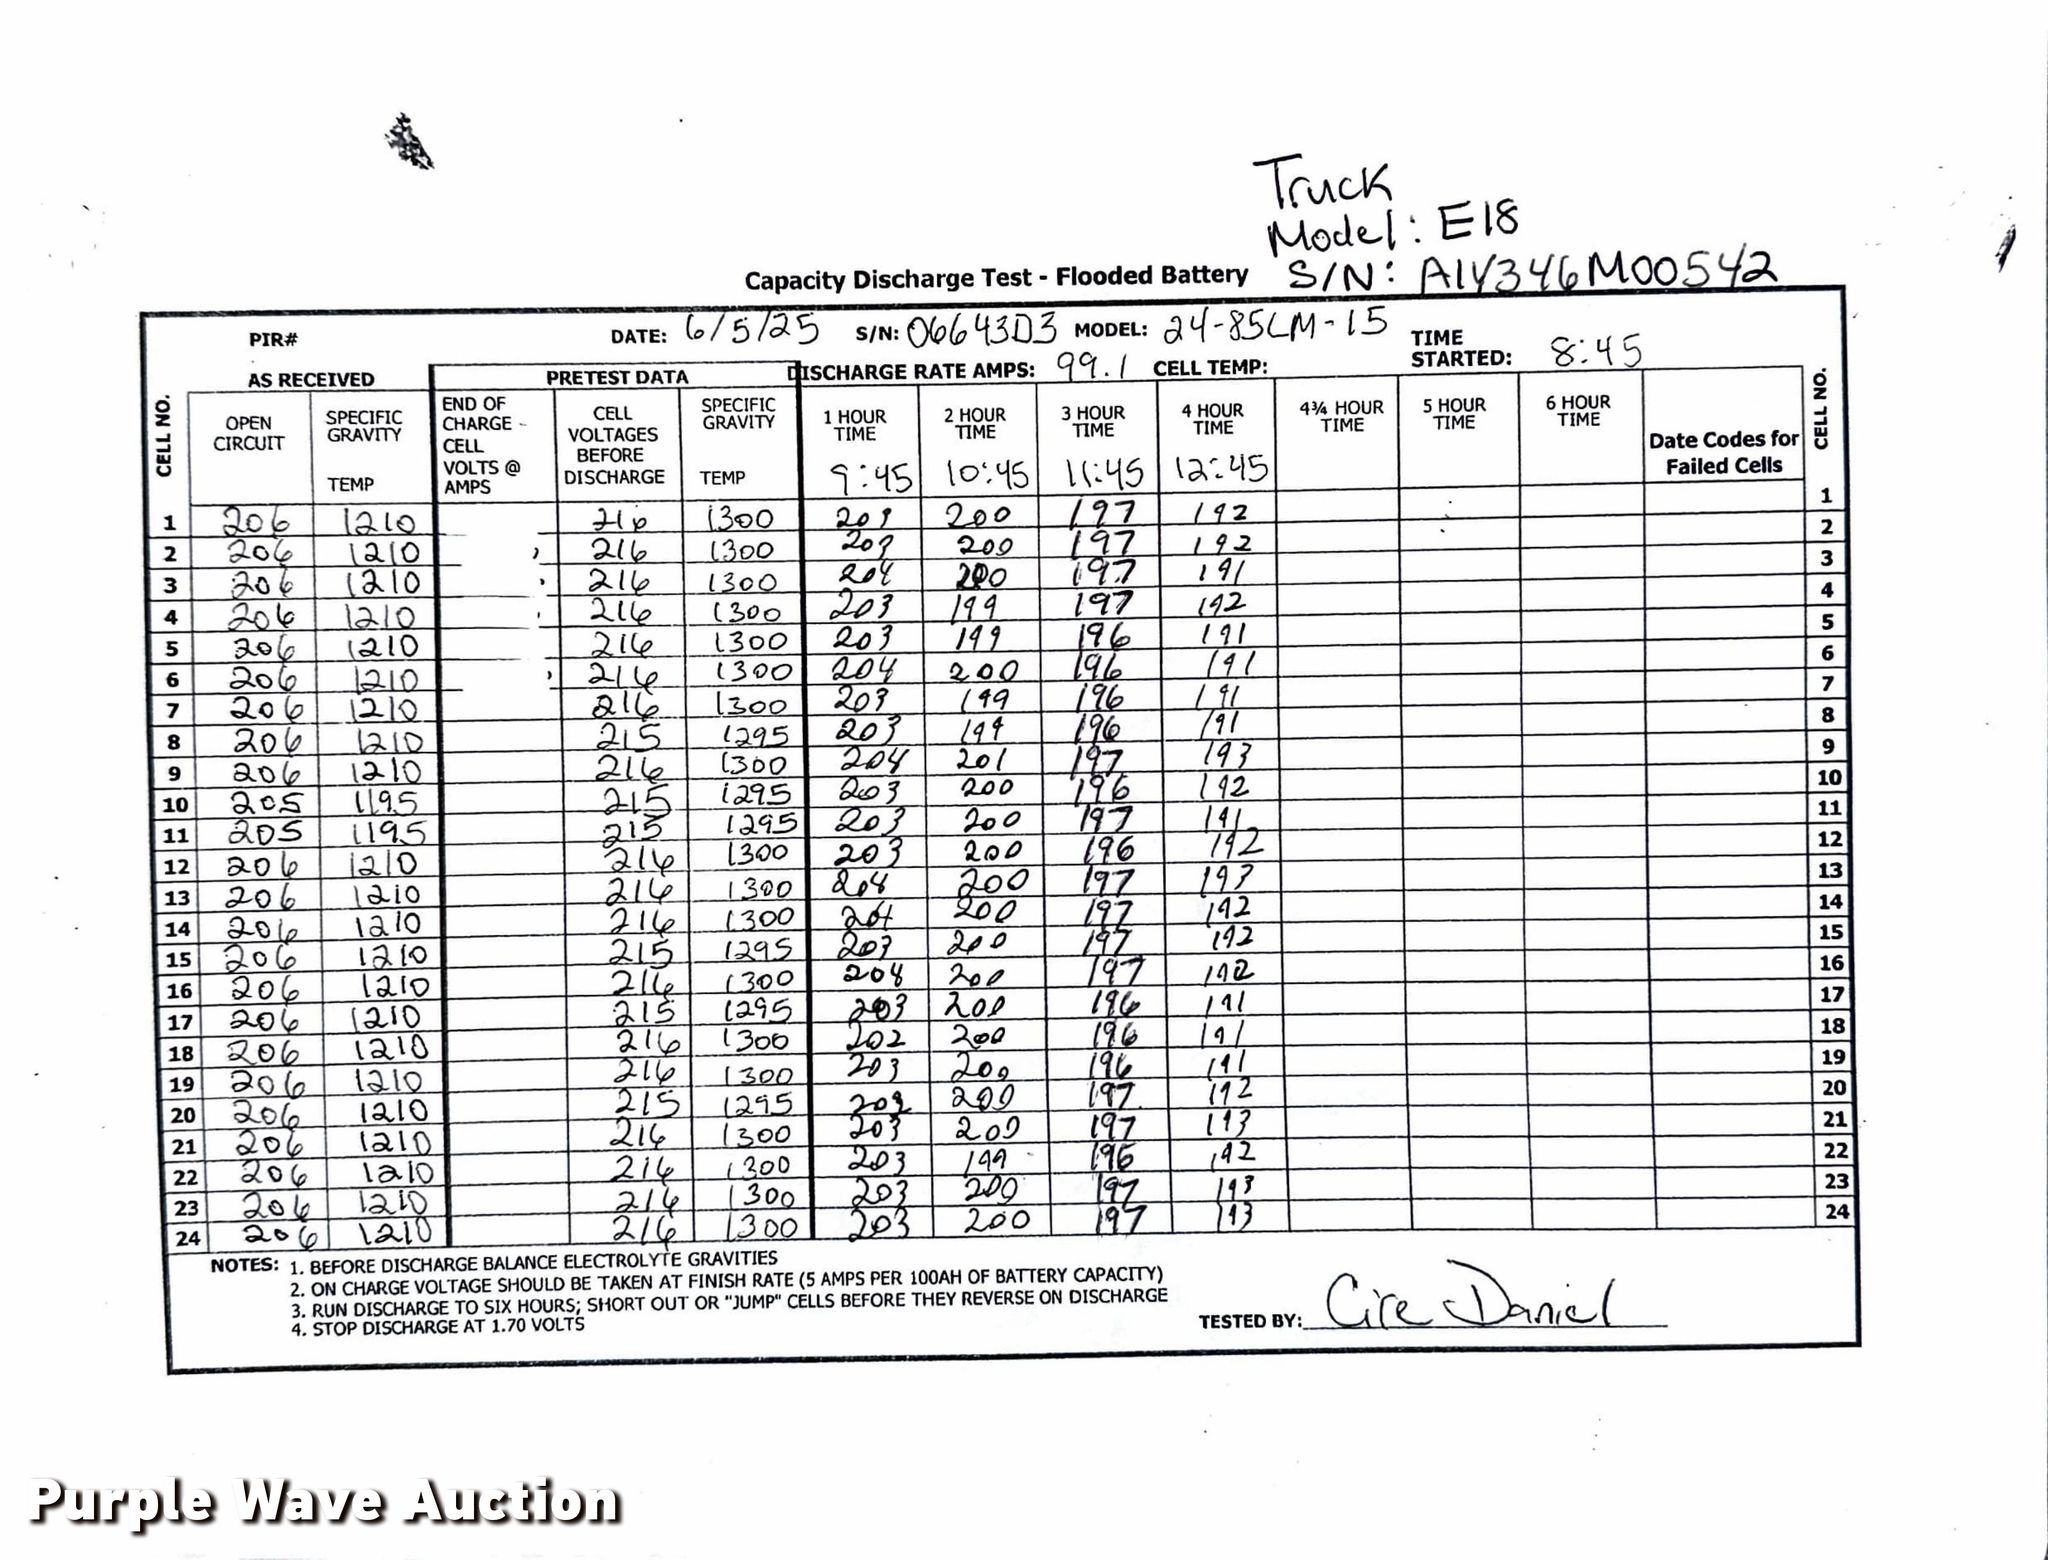 Truck
Model: E18
S/N: A1V346M00542
Capacity Discharge Test - Flooded Battery
PIR# DATE: 6/5/25 S/N: 06643D3 MODEL: 24-85LM-15 TIME STARTED: 8:45
AS RECEIVED PRETEST DATA DISCHARGE RATE AMPS: 99.1 CELL TEMP:
CELL NO. OPEN CIRCUIT SPECIFIC GRAVITY TEMP END OF CHARGE - CELL VOLTS @ AMPS CELL VOLTAGES BEFORE DISCHARGE SPECIFIC GRAVITY TEMP 1 HOUR TIME 9:45 2 HOUR TIME 10:45 3 HOUR TIME 11:45 4 HOUR TIME 12:45 4¾ HOUR TIME 5 HOUR TIME 6 HOUR TIME Date Codes for Failed Cells CELL NO.
1 206 1210 216 1300 203 200 197 192 1
2 206 1210 216 1300 203 200 197 192 2
3 206 1210 216 1300 204 200 197 191 3
4 206 1210 216 1300 203 199 197 192 4
5 206 1210 216 1300 203 199 196 191 5
6 206 1210 216 1300 204 200 196 191 6
7 206 1210 216 1300 203 199 196 191 7
8 206 1210 215 1295 203 199 196 191 8
9 206 1210 216 1300 204 201 197 193 9
10 205 1195 215 1295 203 200 196 192 10
11 205 1195 215 1295 203 200 197 191 11
12 206 1210 216 1300 203 200 196 192 12
13 206 1210 216 1300 204 200 197 193 13
14 206 1210 216 1300 204 200 197 192 14
15 206 1210 215 1295 203 200 197 192 15
16 206 1210 216 1300 204 200 197 192 16
17 206 1210 215 1295 203 200 196 191 17
18 206 1210 216 1300 202 200 196 191 18
19 206 1210 216 1300 203 200 196 191 19
20 206 1210 215 1295 200 197 192 20
21 206 1210 216 1300 203 200 197 193 21
22 206 1210 216 1300 203 199 196 192 22
23 206 1210 216 1300 203 200 197 193 23
24 206 1210 216 1300 203 200 197 193 24
NOTES: 1. BEFORE DISCHARGE BALANCE ELECTROLYTE GRAVITIES
2. ON CHARGE VOLTAGE SHOULD BE TAKEN AT FINISH RATE (5 AMPS PER 100AH OF BATTERY CAPACITY)
3. RUN DISCHARGE TO SIX HOURS; SHORT OUT OR "JUMP" CELLS BEFORE THEY REVERSE ON DISCHARGE
4. STOP DISCHARGE AT 1.70 VOLTS
TESTED BY: Cire Daniel
Purple Wave Auction